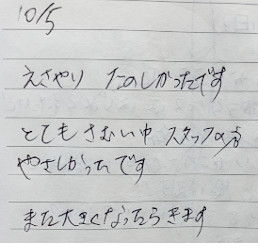 10/5
えさやり たのしかったです
とても さむい中 スタッフの方
やさしかったです
また大きくなったらきます